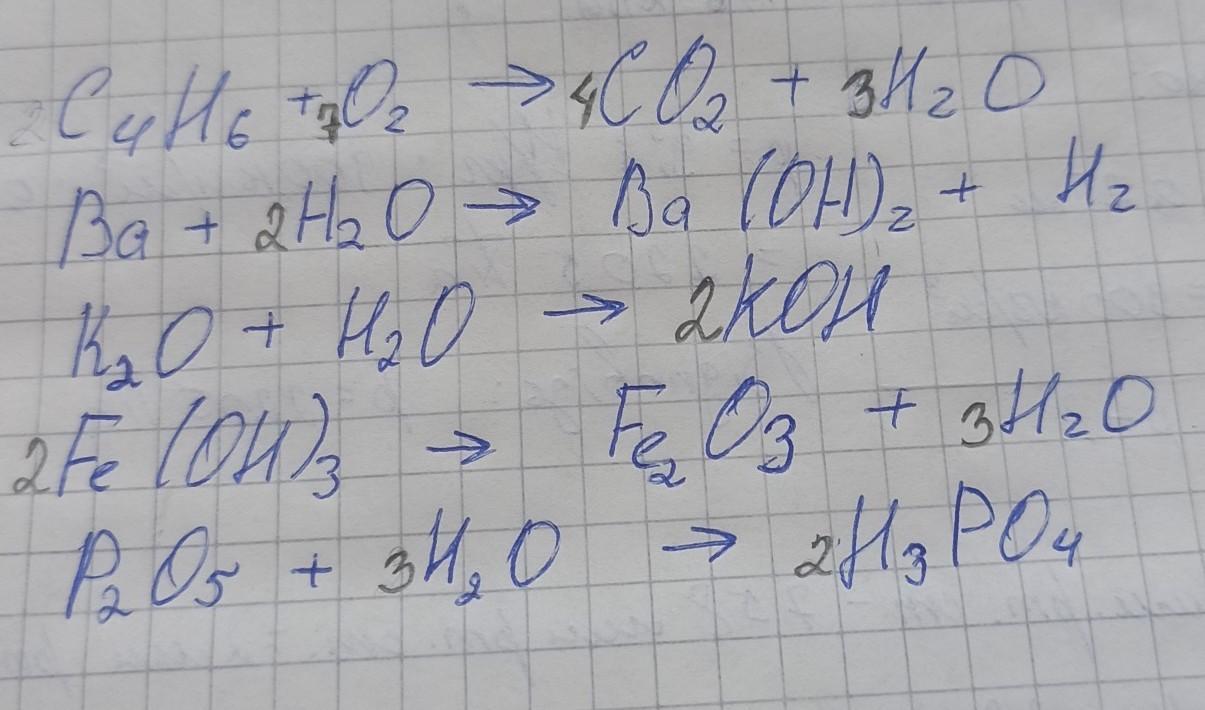 2C₄H₆ + 7O₂ → 4CO₂ + 3H₂O
Ba + 2H₂O → Ba(OH)₂ + H₂
K₂O + H₂O → 2KOH
2Fe(OH)₃ → Fe₂O₃ + 3H₂O
P₂O₅ + 3H₂O → 2H₃PO₄